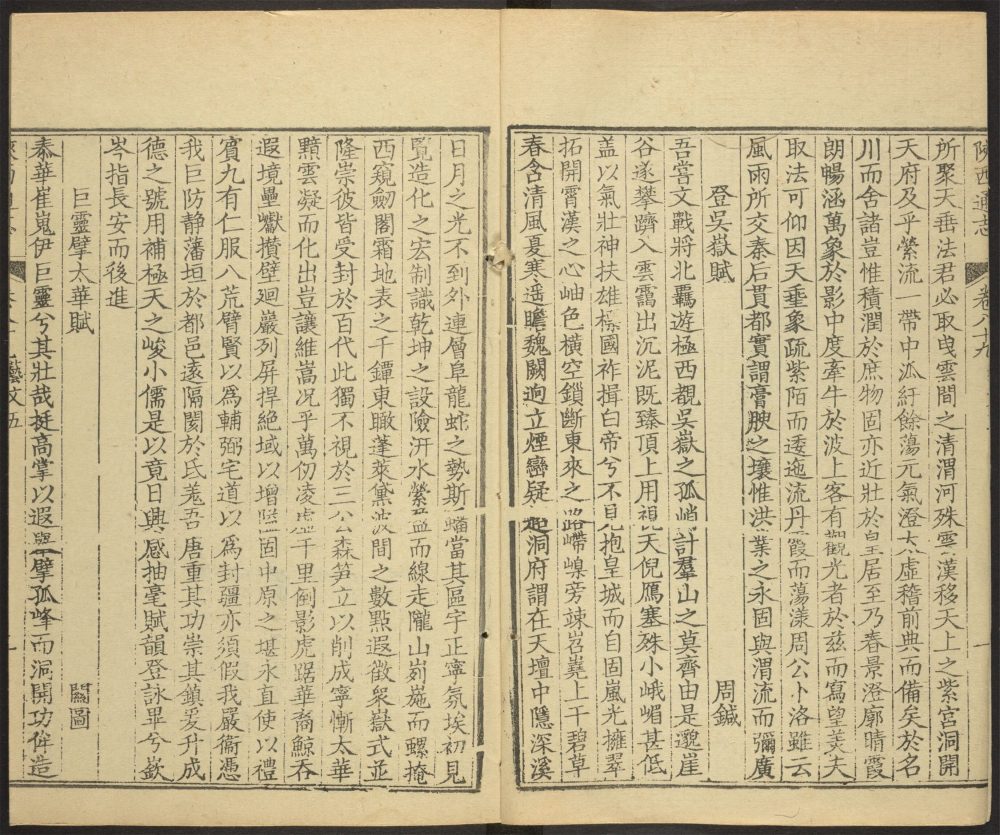 陝西通志 卷八十九 一
所聚天垂法君必取曳雲間之清渭河殊雲漢移天上之紫宮洞開
天府及乎縈流一帶中泒紆餘蕩元氣澄太虛稽前典而備矣於名
川而舍諸豈惟積潤於庶物固亦近壯於皇居至乃春景澄廓晴霞
朗暢涵萬象於影中度牽牛於波上客有觀光者於兹而寫望美夫
取法可仰因天垂象疏紫陌而逶迤流丹霞而蕩漾周公卜洛雖云
風雨所交秦后貫都實謂膏腴之壤惟洪業之永固與渭流而彌廣
登吳嶽賦 周鍼
吾嘗文戰將北覊遊極西覩吳嶽之孤峭計羣山之莫齊由是邈崖
谷遂攀躋入雲靄出沉泥既臻頂上用視天倪鴈塞殊小峨嵋甚低
盖以氣壯神扶雄標國祚揖白帝兮不見抱皇城而自固嵐光擁翠
拓開霄漢之心岫色橫空鎖斷東來之路嶹嵲旁竦岧嶤上干碧草
春含清風夏寒遥瞻魏闕逈立煙巒疑起洞府謂在天壇中隱深溪
日月之光不到外連層阜龍蛇之勢斯蟠當其區宇正寧氛埃初見
覽造化之宏制識乾坤之設險汧水縈盆而線走隴山剡崺而螺掩
西窺劒閣霜地表之千鐔東瞰蓬萊黛波間之數點遐徵衆嶽式並
隆崇彼皆受封於百代此獨不視於三公森笋立以削成寧慚太華
黯雲凝而化出豈讓維嵩况乎萬仞凌虛千里倒影虎踞華裔鯨吞
遐境壘巘攢壁廻巖列屏捍絕域以增隘固中原之堪永直使以禮
賓九有仁服八荒臂賢以爲輔弼宅道以爲封疆亦須假我嚴衞憑
我巨防静藩垣於都邑逺隔閡於氐羗吾唐重其功崇其鎮爰升成
德之號用補極天之峻小儒是以竟日興感抽毫賦韻登詠畢兮欽
岑指長安而後進
巨靈擘太華賦 闕圖
泰華崔嵬伊巨靈兮其壯哉挺高掌以遐舉擘孤峰而洞開功侔造
藝文五